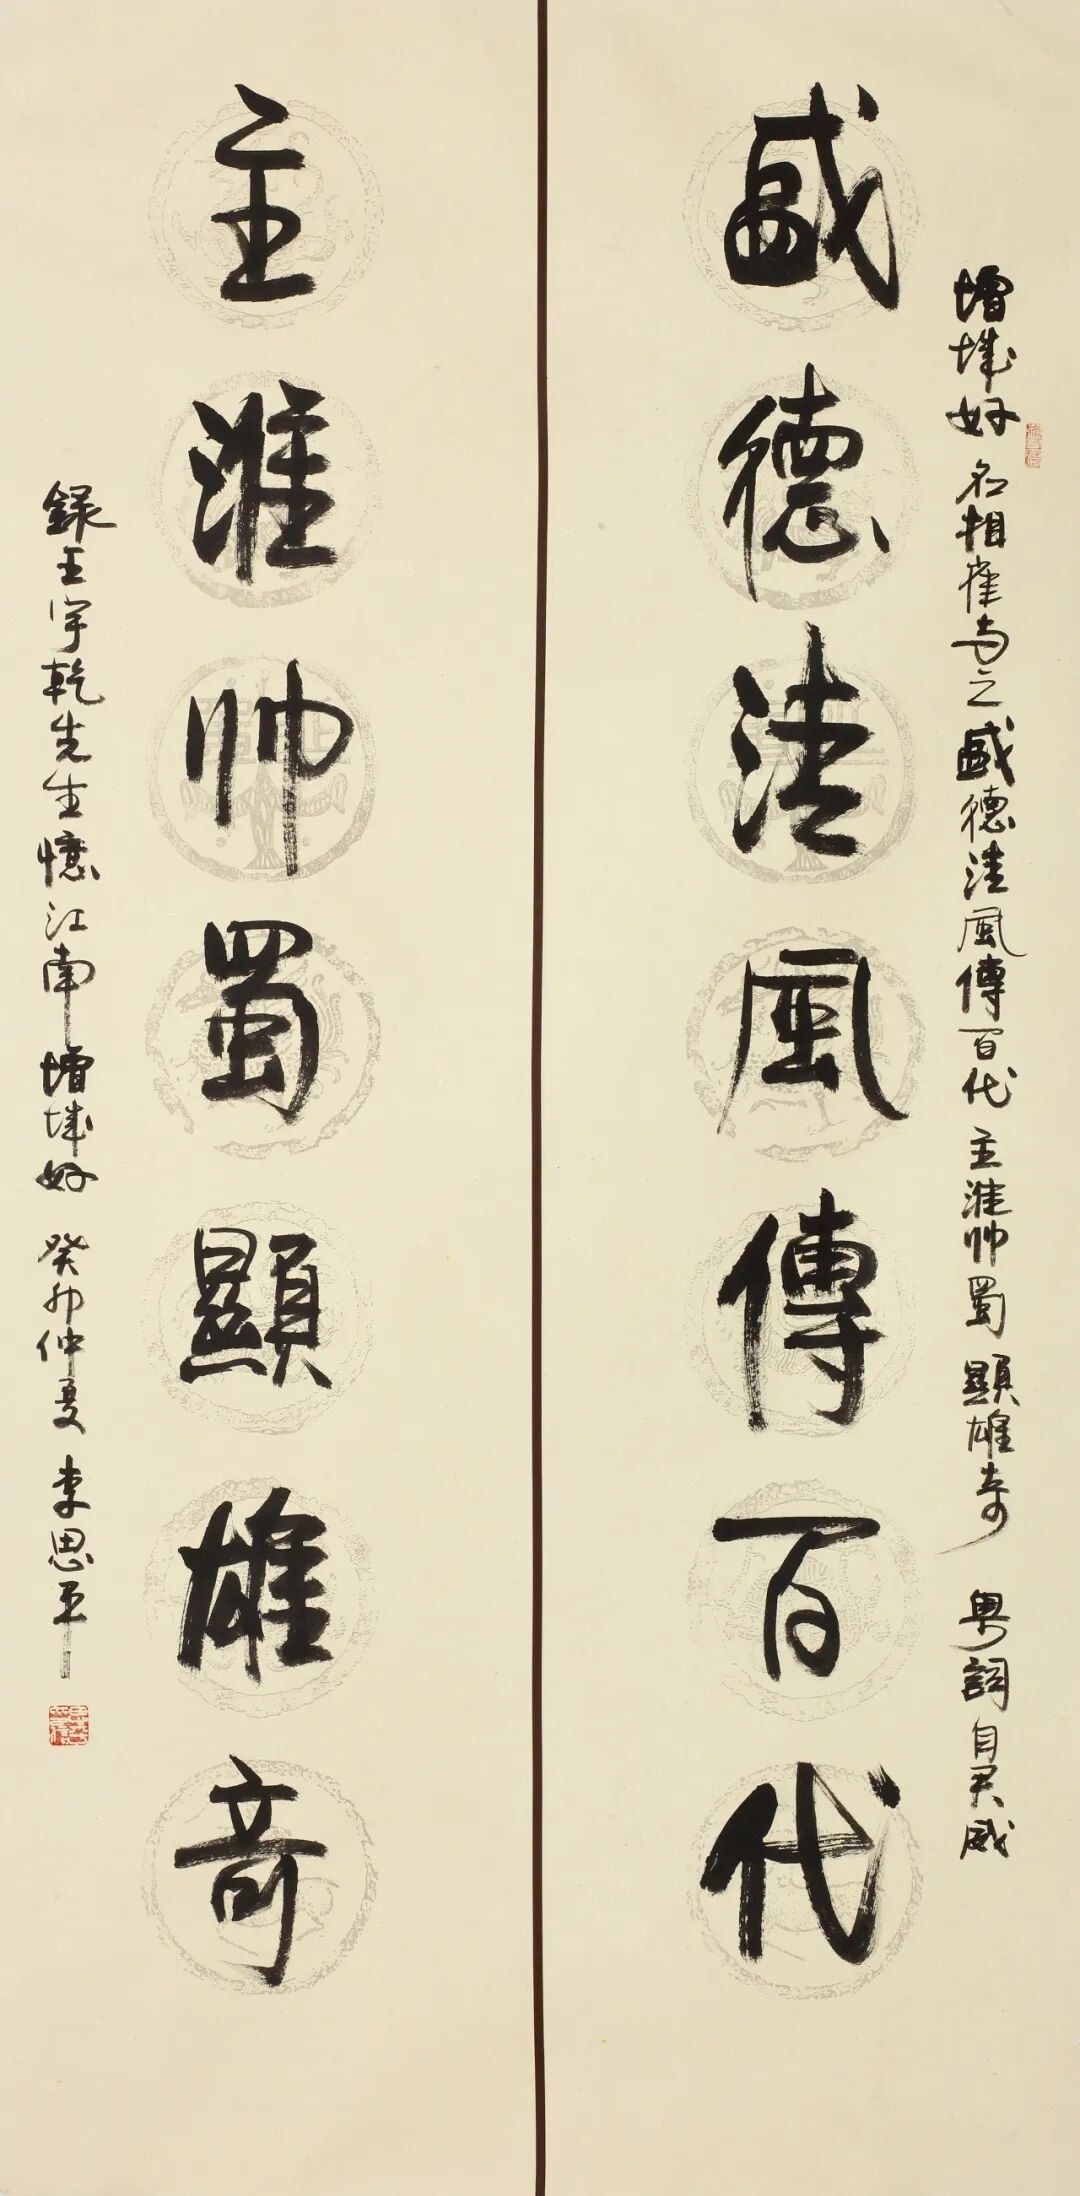 增城好 名相崔与之 盛德清風傳百代 主淮帅蜀顯雄奇 粤詞自君盛
盛德清風傳百代
主淮帅蜀顯雄奇
録王宇乾先生憶江南增城好 癸卯仲夏 李思平